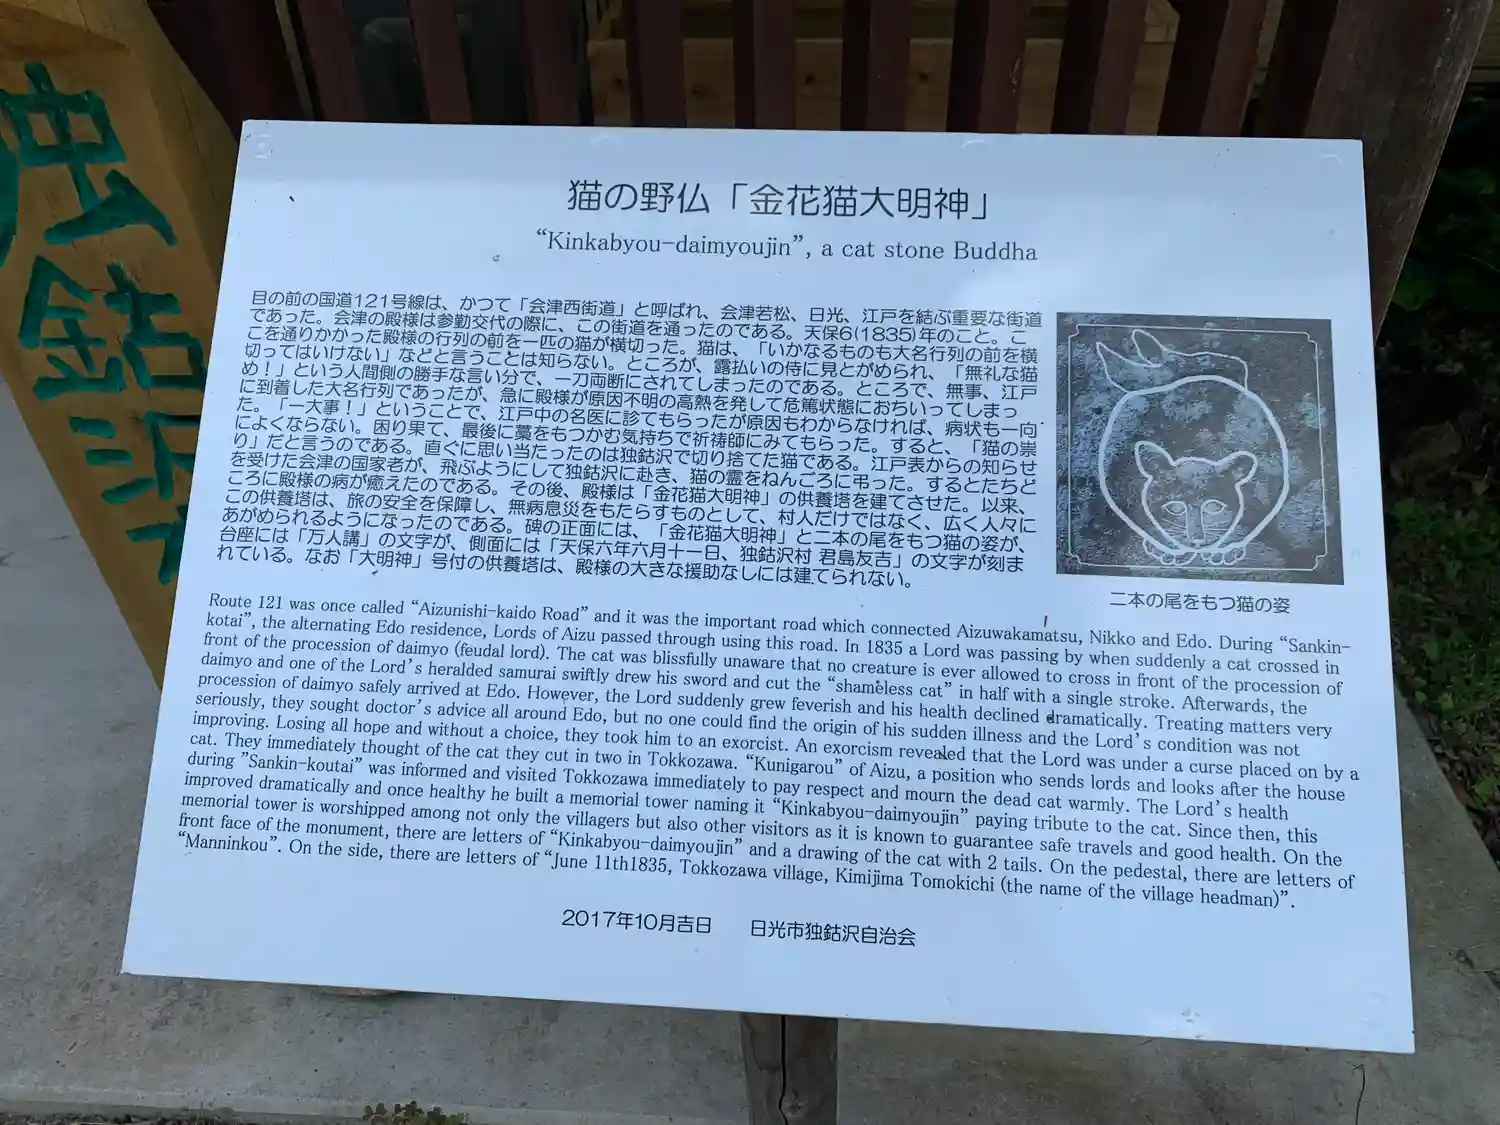 独鈷沢
猫の野仏「金花猫大明神」
“Kinkabyou-daimyoujin”, a cat stone Buddha
目の前の国道121号線は、かつて「会津西街道」と呼ばれ、会津若松、日光、江戸を結ぶ重要な街道
であった。会津の殿様は参勤交代の際に、この街道を通ったのである。天保6(1835)年のこと。こ
こを通りかかった殿様の行列の前を一匹の猫が横切った。猫は、「いかなるものも大名行列の前を横
切ってはいけない」などと言うことは知らない。ところが、露払いの侍に見とがめられ、「無礼な猫
め！」という人間側の勝手な言い分で、一刀両断にされてしまったのである。ところで、無事、江戸
に到着した大名行列であったが、急に殿様が原因不明の高熱を発して危篤状態におちいってしまっ
た。「一大事！」ということで、江戸中の名医に診てもらったが原因もわからなければ、病状も一向
によくならない。困り果て、最後に藁をもつかむ気持ちで祈祷師にみてもらった。すると、「猫の祟
り」だと言うのである。直ぐに思い当たったのは独鈷沢で切り捨てた猫である。江戸表からの知らせ
を受けた会津の国家老が、飛ぶようにして独鈷沢に赴き、猫の霊をねんごろに弔った。するとたちど
ころに殿様の病が癒えたのである。その後、殿様は「金花猫大明神」の供養塔を建てさせた。以来、
この供養塔は、旅の安全を保障し、無病息災をもたらすものとして、村人だけではなく、広く人々に
あがめられるようになったのである。碑の正面には、「金花猫大明神」と二本の尾をもつ猫の姿が、
台座には「万人講」の文字が、側面には「天保六年六月十一日、独鈷沢村 君島友吉」の文字が刻ま
れている。なお「大明神」号付の供養塔は、殿様の大きな援助なしには建てられない。
二本の尾をもつ猫の姿
Route 121 was once called “Aizunishi-kaido Road” and it was the important road which connected Aizuwakamatsu, Nikko and Edo. During “Sankin-
kotai”, the alternating Edo residence, Lords of Aizu passed through using this road. In 1835 a Lord was passing by when suddenly a cat crossed in
front of the procession of daimyo (feudal lord). The cat was blissfully unaware that no creature is ever allowed to cross in front of the procession of
daimyo and one of the Lord’s heralded samurai swiftly drew his sword and cut the “shameless cat” in half with a single stroke. Afterwards, the
procession of daimyo safely arrived at Edo. However, the Lord suddenly grew feverish and his health declined dramatically. Treating matters very
seriously, they sought doctor’s advice all around Edo, but no one could find the origin of his sudden illness and the Lord’s condition was not
improving. Losing all hope and without a choice, they took him to an exorcist. An exorcism revealed that the Lord was under a curse placed on by a
cat. They immediately thought of the cat they cut in two in Tokkozawa. “Kunigarou” of Aizu, a position who sends lords and looks after the house
during ”Sankin-koutai” was informed and visited Tokkozawa immediately to pay respect and mourn the dead cat warmly. The Lord’s health
improved dramatically and once healthy he built a memorial tower naming it “Kinkabyou-daimyoujin” paying tribute to the cat. Since then, this
memorial tower is worshipped among not only the villagers but also other visitors as it is known to guarantee safe travels and good health. On the
front face of the monument, there are letters of “Kinkabyou-daimyoujin” and a drawing of the cat with 2 tails. On the pedestal, there are letters of
“Manninkou”. On the side, there are letters of “June 11th1835, Tokkozawa village, Kimijima Tomokichi (the name of the village headman)”.
2017年10月吉日　　日光市独鈷沢自治会